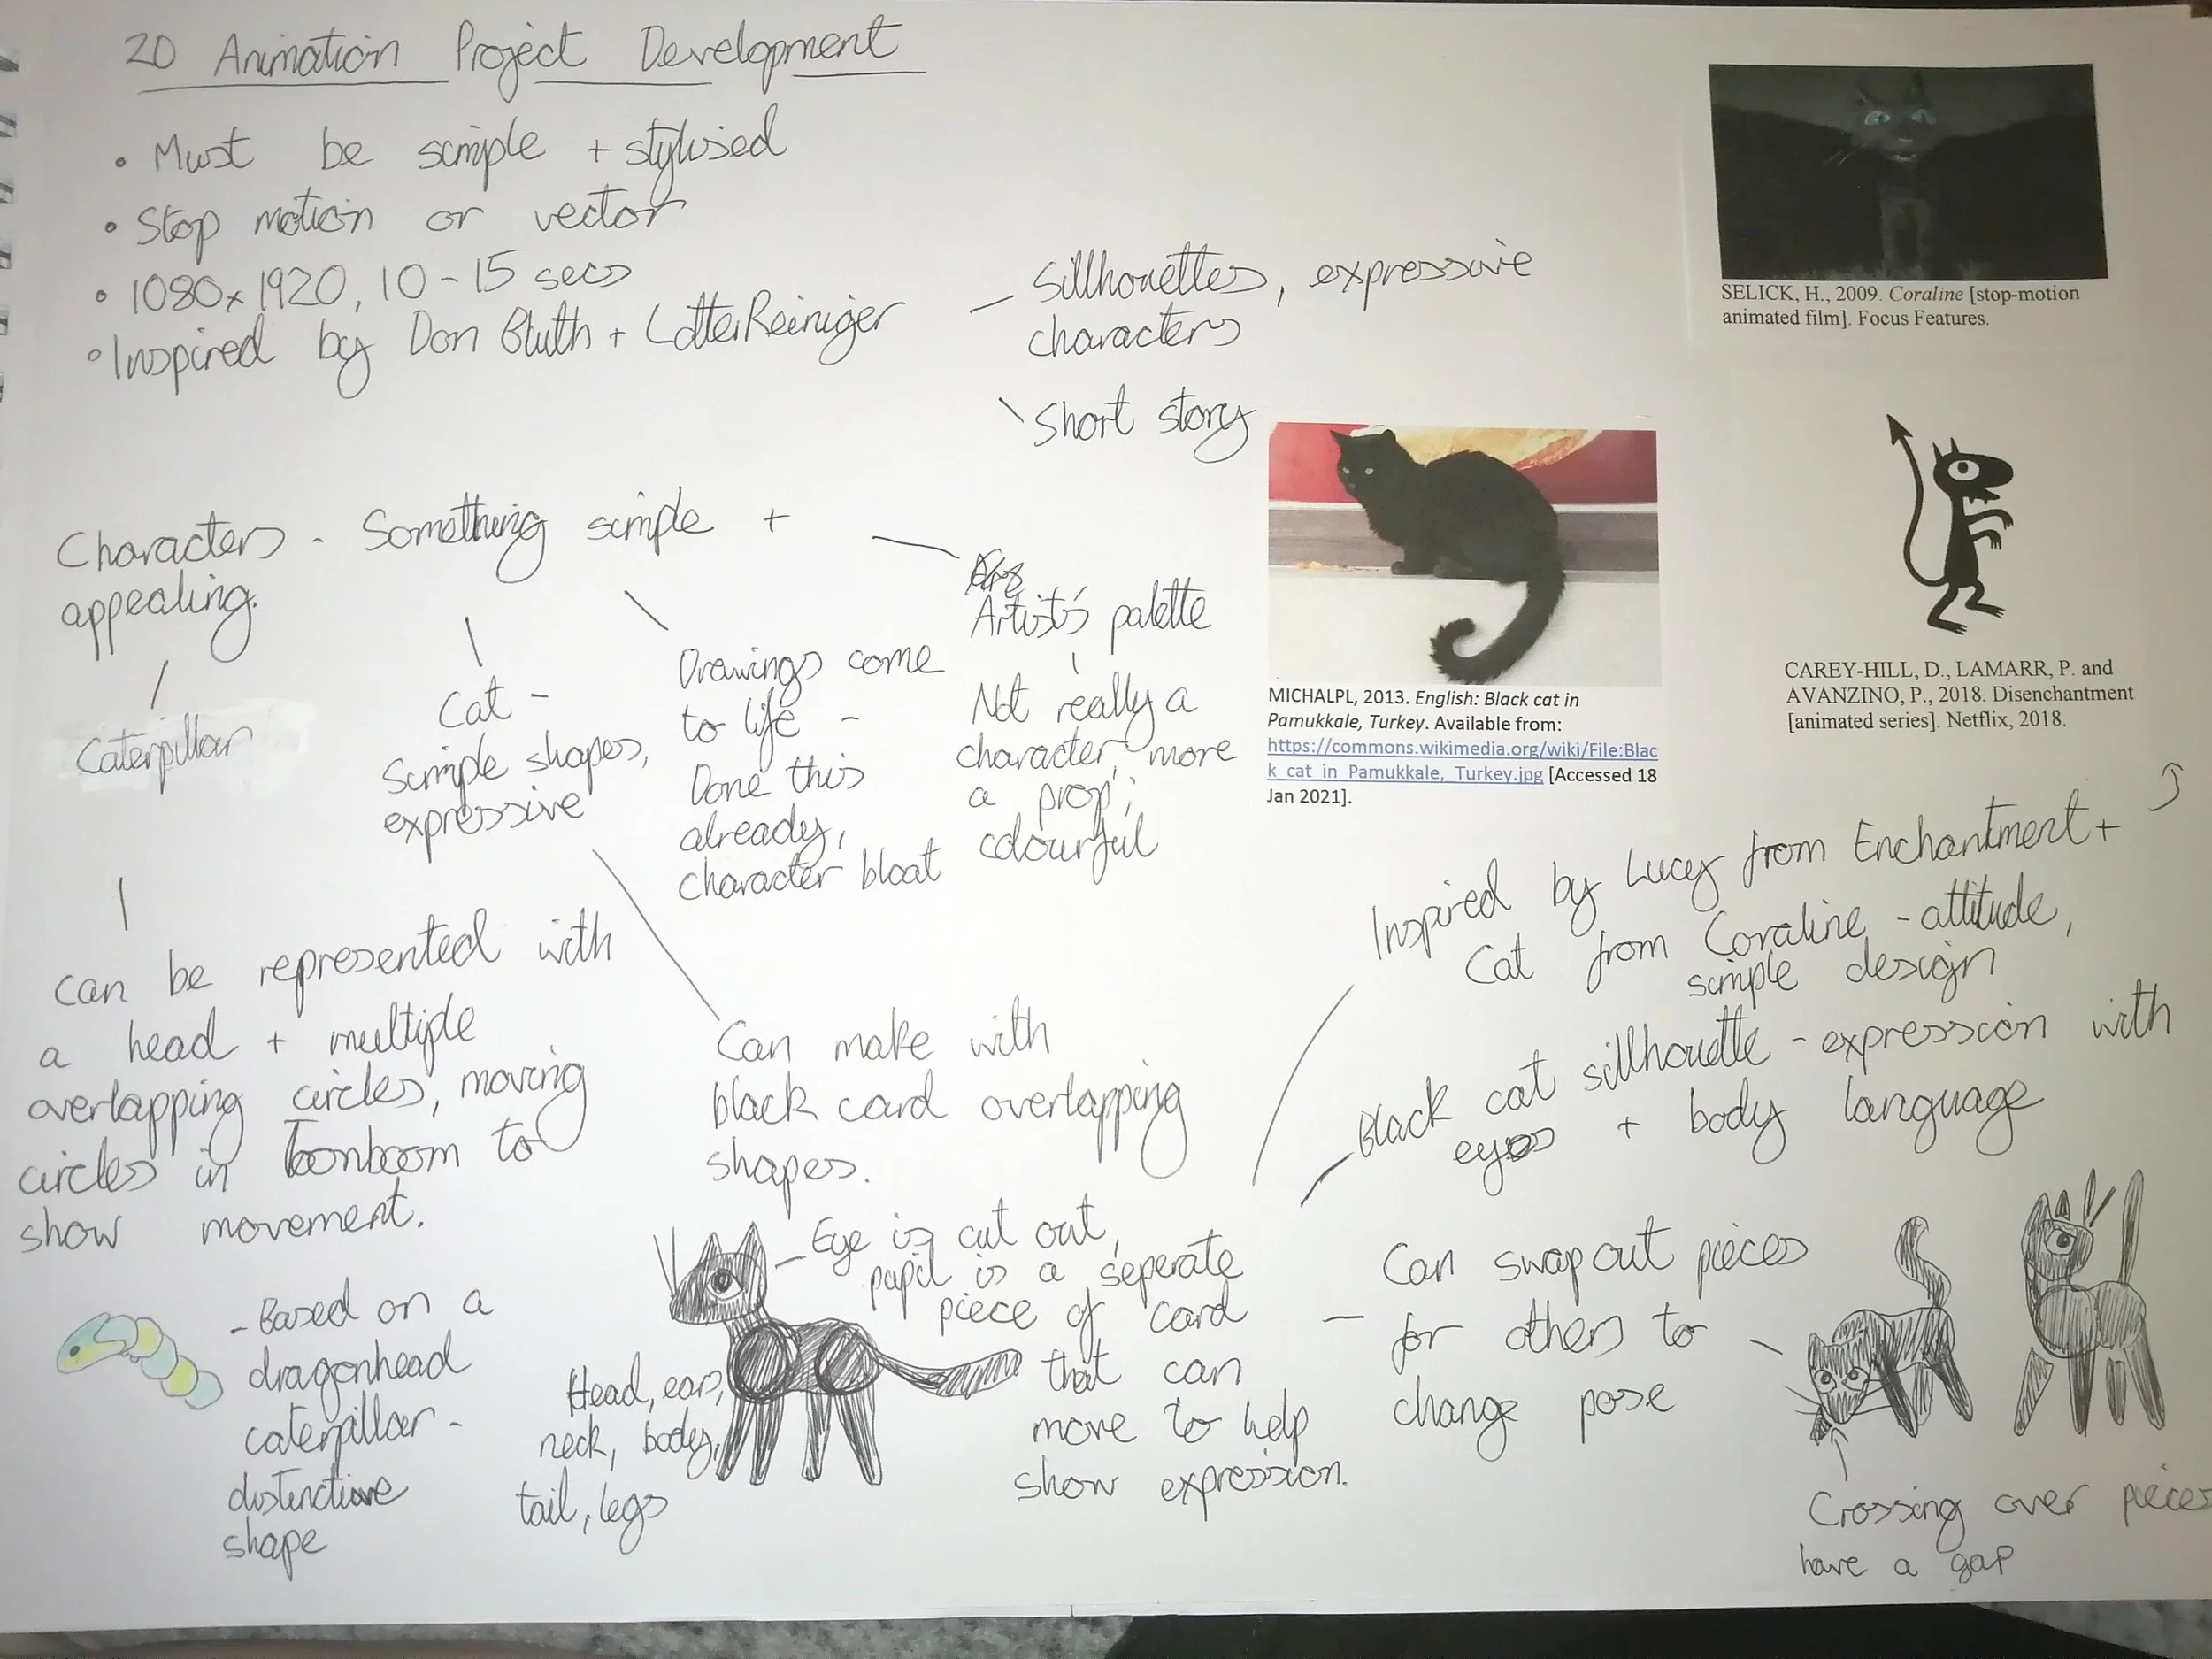 2D Animation Project Development
• Must be simple + stylised
• Stop motion or vector
• 1080x1920, 10-15 secs
• Inspired by Don Bluth + Lotte Reiniger
- Sillhouettes, expressive
characters
\ Short story
SELICK, H., 2009. Coraline [stop-motion
animated film]. Focus Features.
Characters - Something simple +
appealing.
Caterpillar
can be represented with
a head + multiple
overlapping circles, moving
circles in Toonboom to
show movement.
- Based on a
dragonhead
caterpillar -
distinctive
shape
Cat -
Simple shapes,
expressive
Can make with
black card overlapping
shapes.
Drawings come
to life -
Done this
already,
character bloat
Artist's palette
Not really a
character, more
a prop;
colourful
MICHALPL, 2013. English: Black cat in
Pamukkale, Turkey. Available from:
https://commons.wikimedia.org/wiki/File:Blac
k_cat_in_Pamukkale,_Turkey.jpg [Accessed 18
Jan 2021].
CAREY-HILL, D., LAMARR, P. and
AVANZINO, P., 2018. Disenchantment
[animated series]. Netflix, 2018.
Inspired by Lucy from Enchantment +
Cat from Coraline - attitude,
simple design
Black cat sillhouette - expression with
eyes + body language
- Eye is cut out,
pupil is a seperate
piece of card
that can
move to help
show expression.
Head, ears,
neck, body,
tail, legs
- Can swap out pieces
for others to
change pose
Crossing over pieces
have a gap